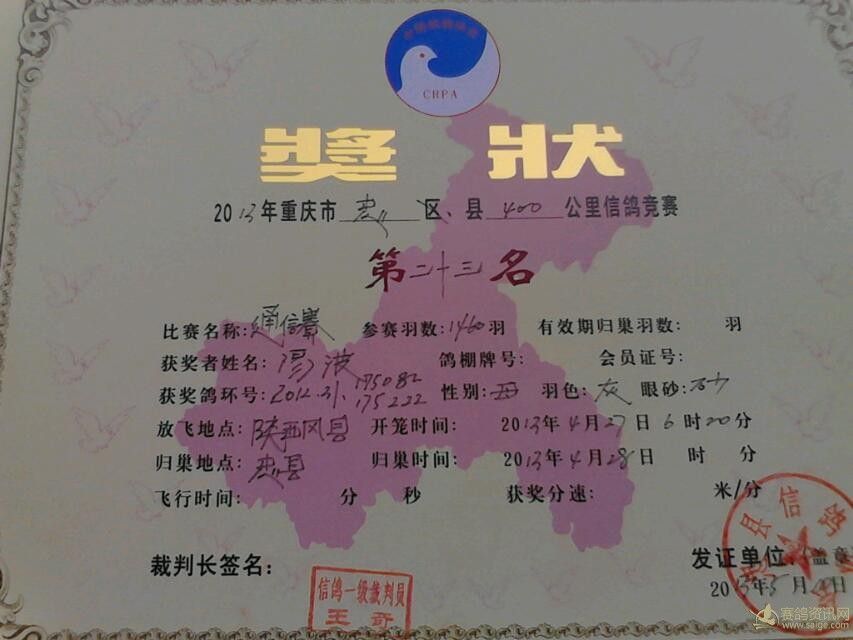 中国信鸽协会
CRPA
奖状
2013年重庆市忠区、县400公里信鸽竞赛
第二十三名
比赛名称:通信赛 参赛羽数:1460羽 有效期归巢羽数: 羽
获奖者姓名:易波 鸽棚牌号: 会员证号:
获奖鸽环号:2012.31.175082
175222 性别:母 羽色:灰 眼砂:砂
放飞地点:陕西凤县 开笼时间: 2013年4月27日6时20分
归巢地点:忠县 归巢时间: 2013年4月28日 时 分
飞行时间: 分 秒 获奖分速: 米/分
裁判长签名: 发证单位:(盖章
2013年5月 日
信鸽一级裁判员
王奇
县信鸽
赛鸽资讯网
www.saige.com